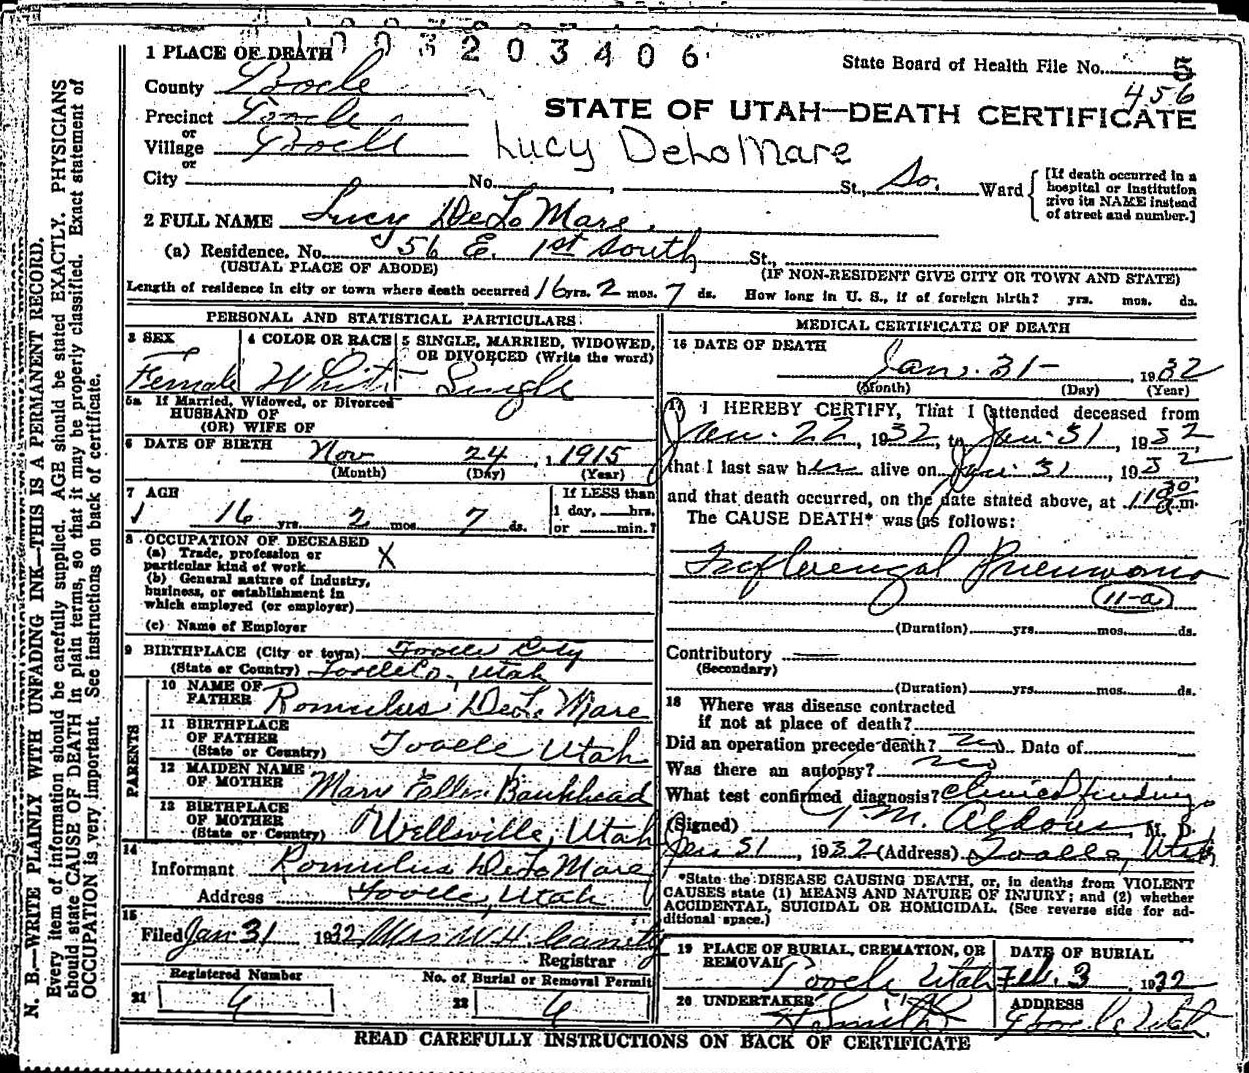 1003203406
1 PLACE OF DEATH
State Board of Health File No. 5
456
County Tooele
STATE OF UTAH—DEATH CERTIFICATE
Precinct Tooele
or
Village Tooele
Lucy DeLaMare
or
City No. , St., So. Ward
[If death occurred in a hospital or institution give its NAME instead of street and number.]
2 FULL NAME Lucy DeLaMare.
(a) Residence. No. 56 E. 1st South St.,
(USUAL PLACE OF ABODE) (IF NON-RESIDENT GIVE CITY OR TOWN AND STATE)
Length of residence in city or town where death occurred 16 yrs. 2 mos. 7 ds. How long in U. S., if of foreign birth? yrs. mos. ds.
PERSONAL AND STATISTICAL PARTICULARS
3 SEX 4 COLOR OR RACE 5 SINGLE, MARRIED, WIDOWED,
OR DIVORCED (Write the word)
Female White Single
5a If Married, Widowed, or Divorced
HUSBAND OF
(OR) WIFE OF
6 DATE OF BIRTH Nov 24, 1915
(Month) (Day) (Year)
7 AGE If LESS than
16 yrs 2 mos 7 ds. 1 day, hrs.
or min.?
8 OCCUPATION OF DECEASED
(a) Trade, profession or
particular kind of work X
(b) General nature of industry,
business, or establishment in
which employed (or employer)
(c) Name of Employer
9 BIRTHPLACE (City or town) Tooele City
(State or Country) Tooele Co., Utah
PARENTS
10 NAME OF
FATHER Romulus DeLaMare
11 BIRTHPLACE
OF FATHER
(State or Country) Tooele Utah
12 MAIDEN NAME
OF MOTHER Mary Ellen Bankhead
13 BIRTHPLACE
OF MOTHER
(State or Country) Wellsville, Utah
14
Informant Romulus DeLaMare
Address Tooele, Utah
15
Filed Jan 31 1932 Mrs W.H.
Registrar
Registered Number No. of Burial or Removal Permit
21 6 22 6
MEDICAL CERTIFICATE OF DEATH
16 DATE OF DEATH
Jan. 31- , 1932
(Month) (Day) (Year)
17 I HEREBY CERTIFY, That I attended deceased from
Jan. 22, 1932, to Jan. 31, 1932
that I last saw her alive on Jan. 31, 1932
and that death occurred, on the date stated above, at 11 30 a.m.
The CAUSE DEATH* was as follows:
Influenzal Pneumonia
11-a
(Duration) yrs. mos. ds.
Contributory
(Secondary)
(Duration) yrs. mos. ds.
18 Where was disease contracted
if not at place of death?
Did an operation precede death? no Date of
Was there an autopsy? no
What test confirmed diagnosis? clinical findings
(Signed) M. D.
Jan 31, 1932 (Address) Tooele, Utah
*State the DISEASE CAUSING DEATH, or, in deaths from VIOLENT
CAUSES state (1) MEANS AND NATURE OF INJURY; and (2) whether
ACCIDENTAL, SUICIDAL OR HOMICIDAL. (See reverse side for ad-
ditional space.)
19 PLACE OF BURIAL, CREMATION, OR DATE OF BURIAL
REMOVAL Tooele Utah Feb. 3 1932
20 UNDERTAKER ADDRESS
Smith Tooele Utah
READ CAREFULLY INSTRUCTIONS ON BACK OF CERTIFICATE
N. B.—WRITE PLAINLY WITH UNFADING INK—THIS IS A PERMANENT RECORD.
Every item of information should be carefully supplied. AGE should be stated EXACTLY. PHYSICIANS
should state CAUSE OF DEATH in plain terms, so that it may be properly classified. Exact statement of
OCCUPATION is very important. See instructions on back of certificate.